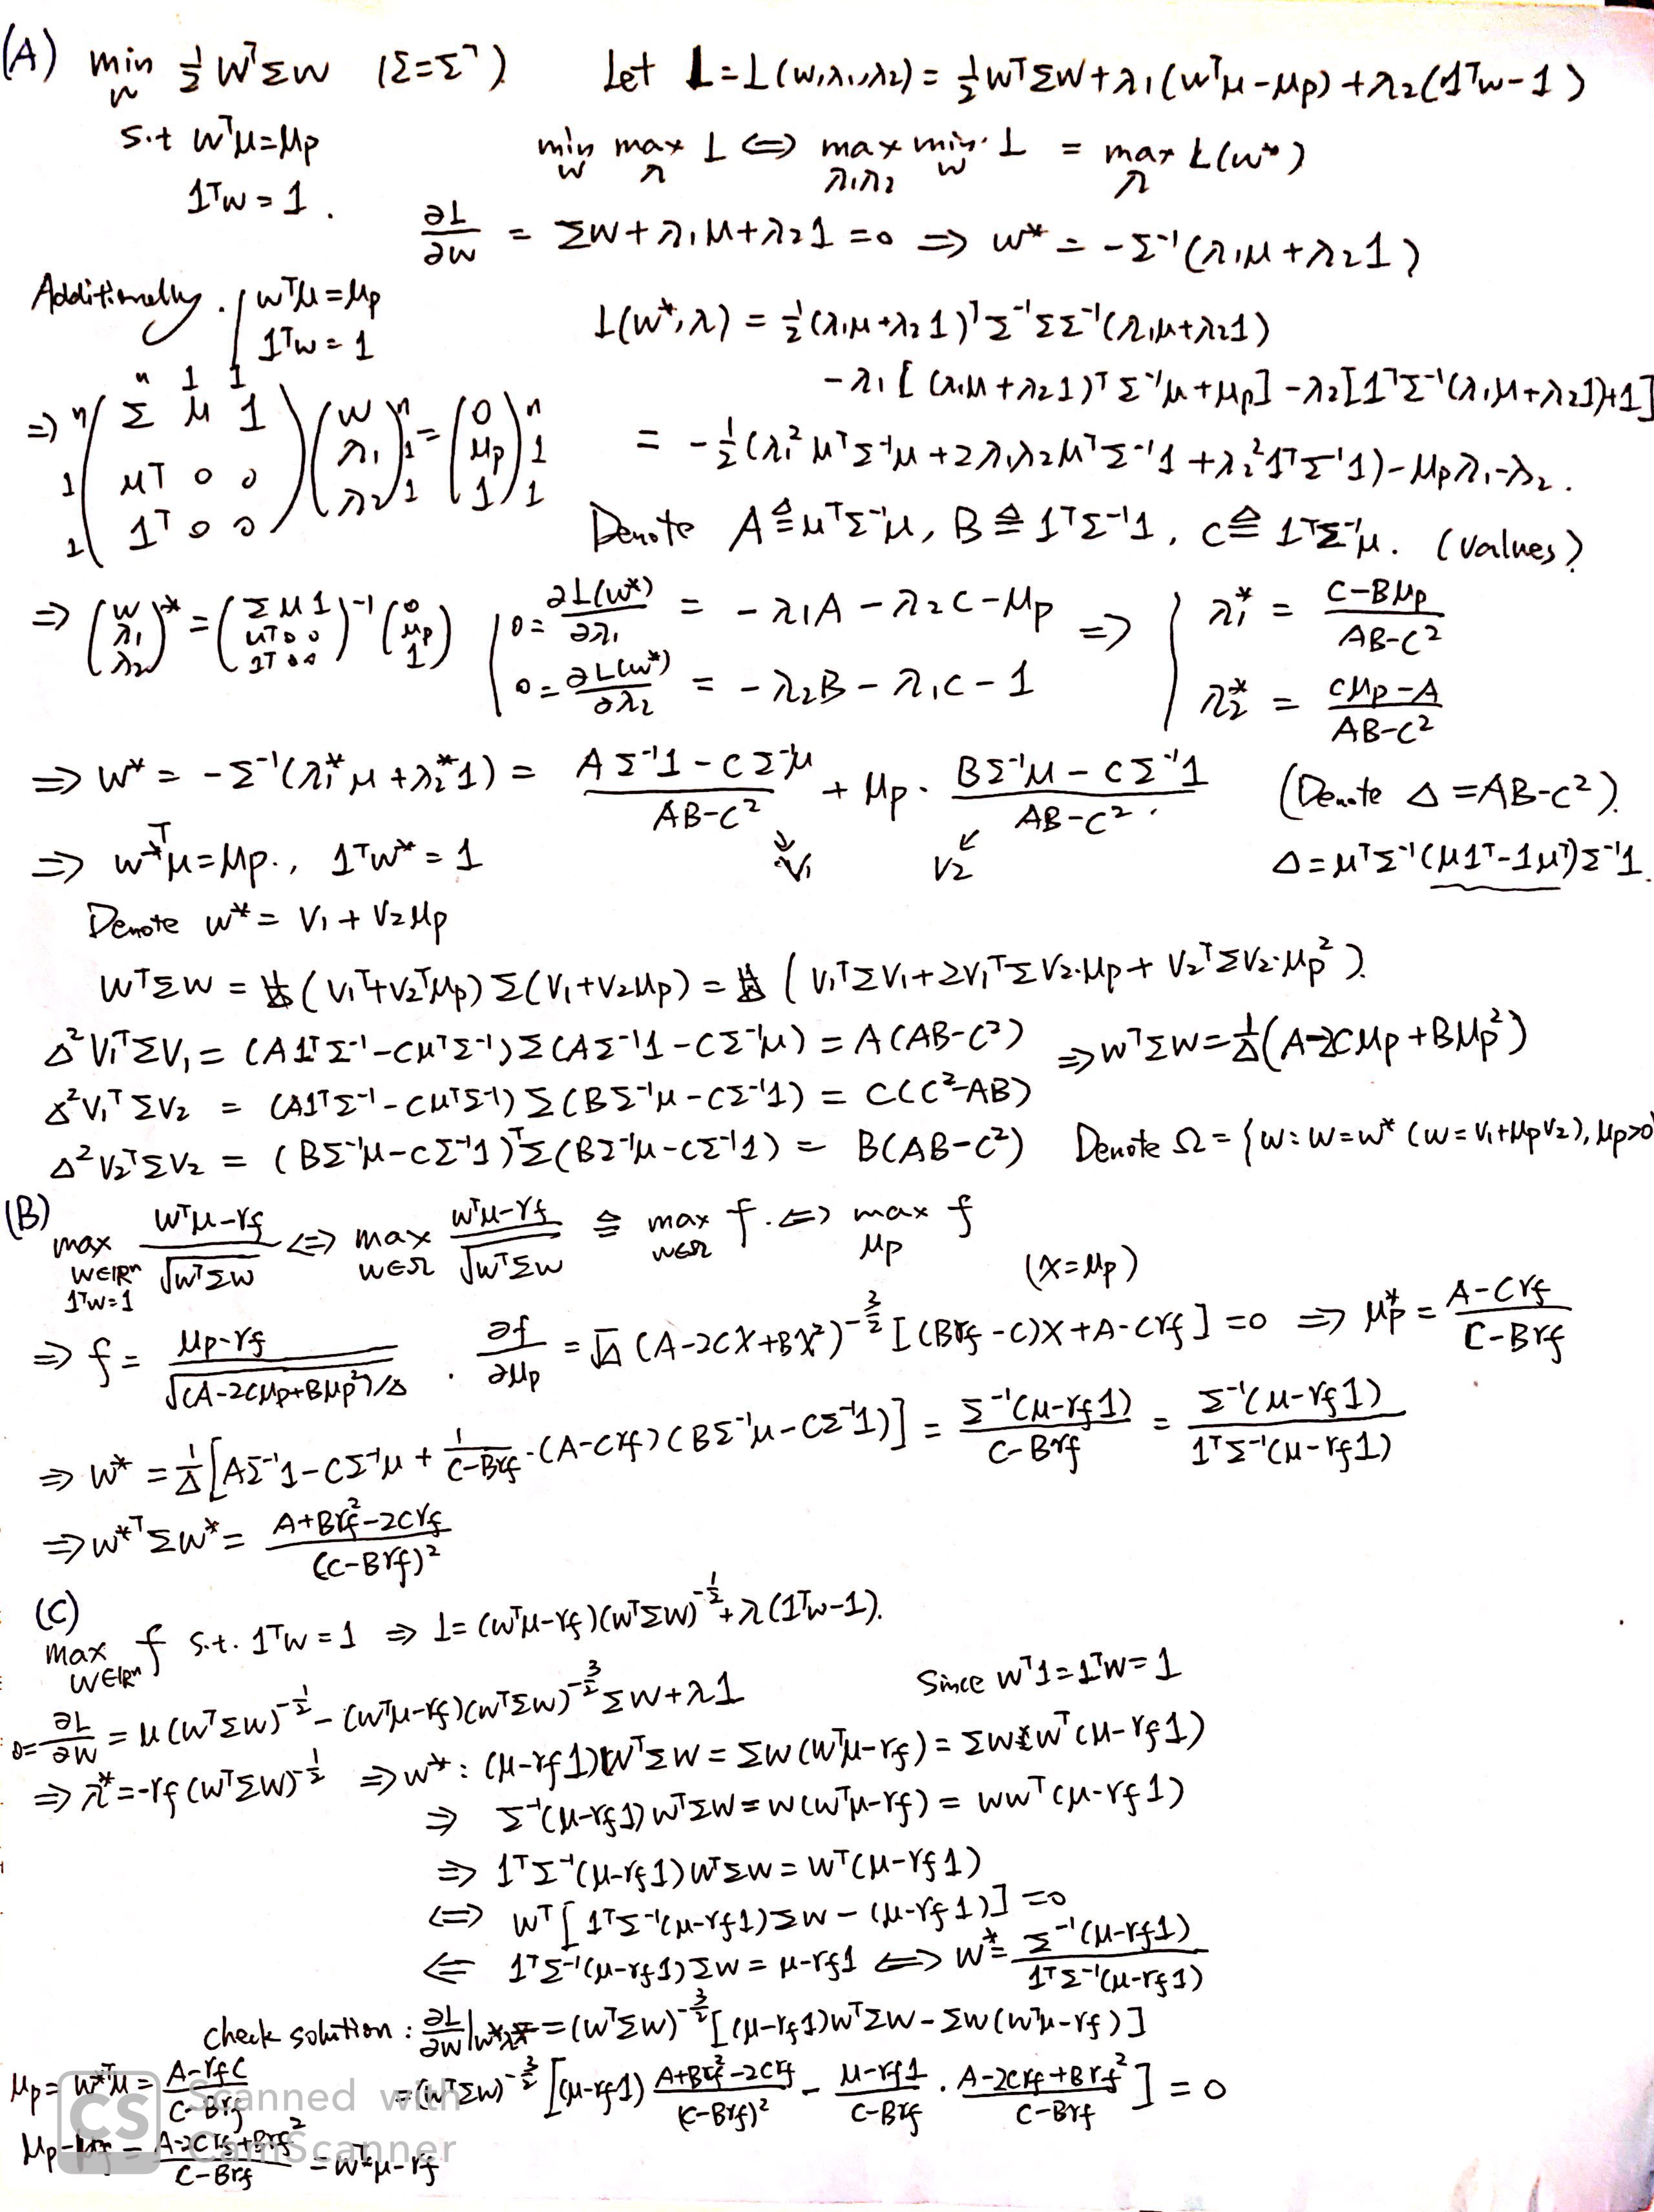 (A) min_w ½ wᵀΣw (Σ=Σᵀ) Let L=L(w,λ₁,λ₂) = ½ wᵀΣw+λ₁(wᵀμ-μp)+λ₂(1ᵀw-1)
s.t wᵀμ=μp
min_w max_λ L ⇔ max_{λ₁λ₂} min_w L = max_λ L(w*)
1ᵀw=1.
∂L/∂w = Σw+λ₁μ+λ₂1=0 ⇒ w* = -Σ⁻¹(λ₁μ+λ₂1)
Additionally. { wᵀμ=μp
1ᵀw=1
L(w*,λ) = ½(λ₁μ+λ₂1)ᵀΣ⁻¹ΣΣ⁻¹(λ₁μ+λ₂1)
-λ₁[(λ₁μ+λ₂1)ᵀΣ⁻¹μ+μp]-λ₂[1ᵀΣ⁻¹(λ₁μ+λ₂1)+1]
n 1 1
⇒ n ( Σ μ 1 ) ( w ) n = ( 0 ) n
1 ( μᵀ 0 0 ) ( λ₁ ) 1 ( μp ) 1
1 ( 1ᵀ 0 0 ) ( λ₂ ) 1 ( 1 ) 1
= -½(λ₁²μᵀΣ⁻¹μ+2λ₁λ₂μᵀΣ⁻¹1+λ₂²1ᵀΣ⁻¹1)-μpλ₁-λ₂.
Denote A≜μᵀΣ⁻¹μ, B≜1ᵀΣ⁻¹1, C≜1ᵀΣ⁻¹μ. (values)
⇒ (w λ₁ λ₂)* = (Σ μ 1 μᵀ 0 0 1ᵀ 0 0)⁻¹ (0 μp 1)
{ 0=∂L(w*)/∂λ₁ = -λ₁A-λ₂C-μp ⇒ { λ₁* = (C-Bμp)/(AB-C²)
0=∂L(w*)/∂λ₂ = -λ₂B-λ₁C-1 λ₂* = (Cμp-A)/(AB-C²)
⇒ w* = -Σ⁻¹(λ₁*μ+λ₂*1) = (AΣ⁻¹1-CΣ⁻¹μ)/(AB-C²) + μp·(BΣ⁻¹μ-CΣ⁻¹1)/(AB-C²). (Denote Δ=AB-C²).
⇒ w*ᵀμ=μp., 1ᵀw*=1 V₁ V₂ Δ=μᵀΣ⁻¹(μ1ᵀ-1μᵀ)Σ⁻¹1.
Denote w* = V₁+V₂μp
wᵀΣw = (V₁ᵀ+V₂ᵀμp)Σ(V₁+V₂μp) = (V₁ᵀΣV₁+2V₁ᵀΣV₂·μp+V₂ᵀΣV₂·μp²).
Δ²V₁ᵀΣV₁ = (A1ᵀΣ⁻¹-CμᵀΣ⁻¹)Σ(AΣ⁻¹1-CΣ⁻¹μ) = A(AB-C²) ⇒ wᵀΣw=1/Δ(A-2Cμp+Bμp²)
Δ²V₁ᵀΣV₂ = (A1ᵀΣ⁻¹-CμᵀΣ⁻¹)Σ(BΣ⁻¹μ-CΣ⁻¹1) = C(C²-AB)
Δ²V₂ᵀΣV₂ = (BΣ⁻¹μ-CΣ⁻¹1)ᵀΣ(BΣ⁻¹μ-CΣ⁻¹1) = B(AB-C²) Denote Ω={w: w=w* (w=V₁+μpV₂), μp>0
(B) max_{w∈ℝⁿ 1ᵀw=1} (wᵀμ-rf)/√(wᵀΣw) ⇔ max_{w∈Ω} (wᵀμ-rf)/√(wᵀΣw) ≜ max_{w∈Ω} f. ⇔ max_{μp} f
(X=μp)
⇒ f = (μp-rf)/√((A-2Cμp+Bμp²)/Δ). ∂f/∂μp = √Δ (A-2CX+BX²)^{-3/2}[(Brf-C)X+A-Crf]=0 ⇒ μp* = (A-Crf)/(C-Brf)
⇒ w* = 1/Δ[AΣ⁻¹1-CΣ⁻¹μ+1/(C-Brf)·(A-Crf)(BΣ⁻¹μ-CΣ⁻¹1)] = Σ⁻¹(μ-rf1)/(C-Brf) = Σ⁻¹(μ-rf1)/(1ᵀΣ⁻¹(μ-rf1))
⇒ w*ᵀΣw* = (A+Brf²-2Crf)/(C-Brf)²
(C)
max_{w∈ℝⁿ} f s.t. 1ᵀw=1 ⇒ L=(wᵀμ-rf)(wᵀΣw)^{-1/2}+λ(1ᵀw-1).
0=∂L/∂w = μ(wᵀΣw)^{-1/2}-(wᵀμ-rf)(wᵀΣw)^{-3/2}Σw+λ1 Since wᵀ1=1ᵀw=1
⇒ λ*=-rf(wᵀΣw)^{-1/2} ⇒ w*: (μ-rf1)wᵀΣw=Σw(wᵀμ-rf)=Σwwᵀ(μ-rf1)
⇒ Σ⁻¹(μ-rf1)wᵀΣw=w(wᵀμ-rf)=wwᵀ(μ-rf1)
⇒ 1ᵀΣ⁻¹(μ-rf1)wᵀΣw=wᵀ(μ-rf1)
⇔ wᵀ[1ᵀΣ⁻¹(μ-rf1)Σw-(μ-rf1)]=0
⇐ 1ᵀΣ⁻¹(μ-rf1)Σw=μ-rf1 ⇔ w*=Σ⁻¹(μ-rf1)/(1ᵀΣ⁻¹(μ-rf1))
check solution: ∂L/∂w|w*,λ* =(wᵀΣw)^{-3/2}[(μ-rf1)wᵀΣw-Σw(wᵀμ-rf)]
μp=w*ᵀμ=(A-rfC)/(C-Brf) =(wᵀΣw)^{-3/2}[(μ-rf1)(A+Brf²-2Crf)/(C-Brf)²-(μ-rf1)/(C-Brf)·(A-2Crf+Brf²)/(C-Brf)]=0
μp-rf=(A-2Crf+Brf²)/(C-Brf)=w*ᵀμ-rf
CS Scanned with
CamScanner